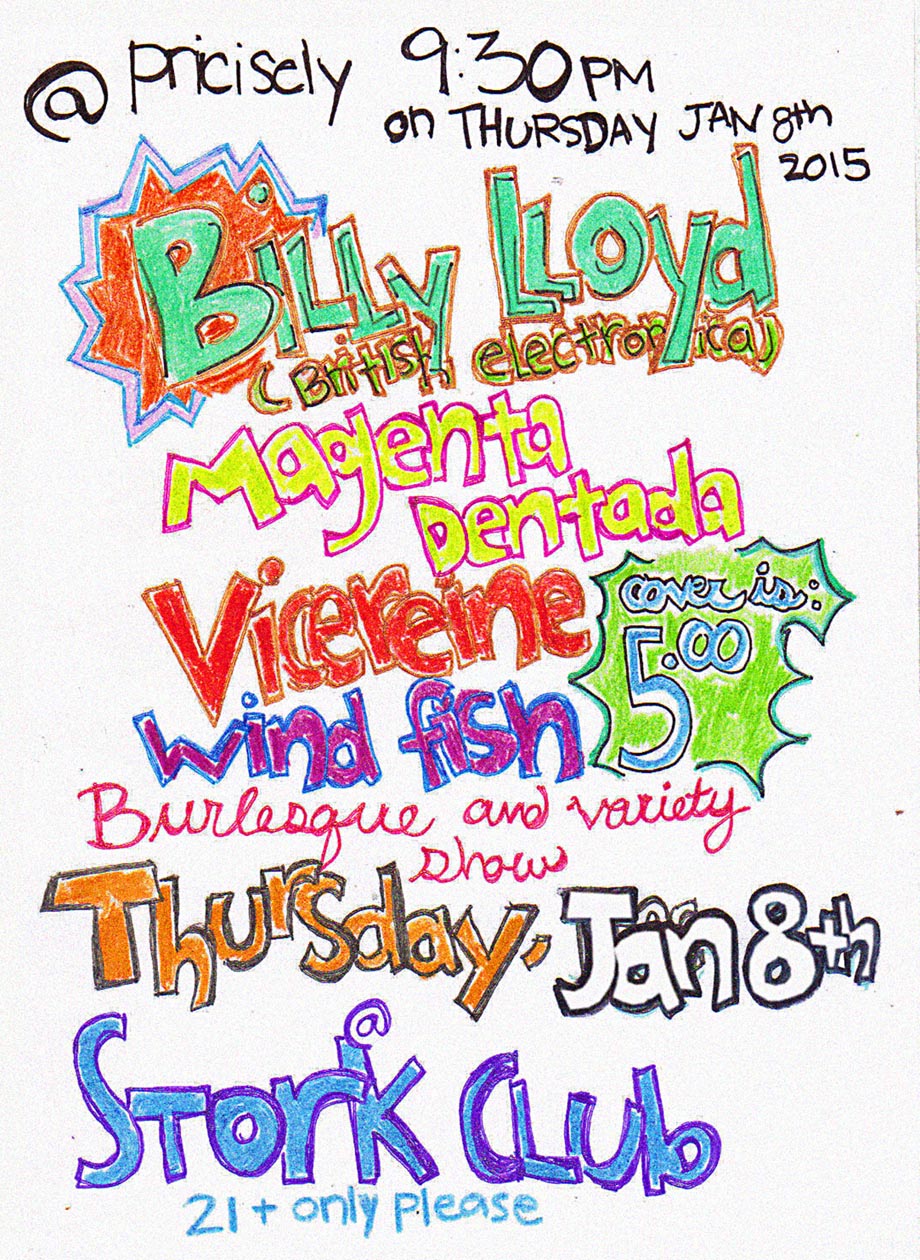 @ pricisely 9:30 PM
on THURSDAY JAN 8th
2015
BiLLy LLoyd
(British electronica)
Magenta
Dentada
Vicereine
cover is:
5.00
wind fish
Burlesque and variety
show
Thursday, Jan 8th
@
STorK CLub
21+ only please